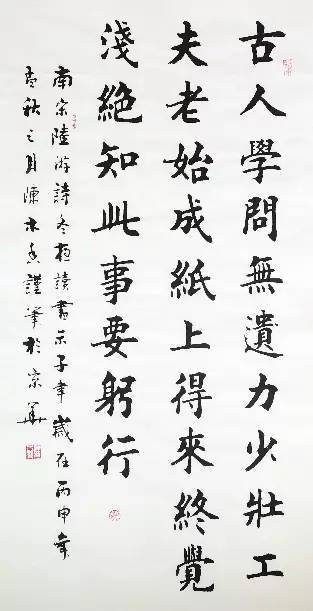 古人學問無遺力少壯工
夫老始成紙上得來終覺
淺絶知此事要躬行
南宋陸游詩冬夜讀書示子聿歲在丙申年
孟秋之月陳木香謹筆於京華